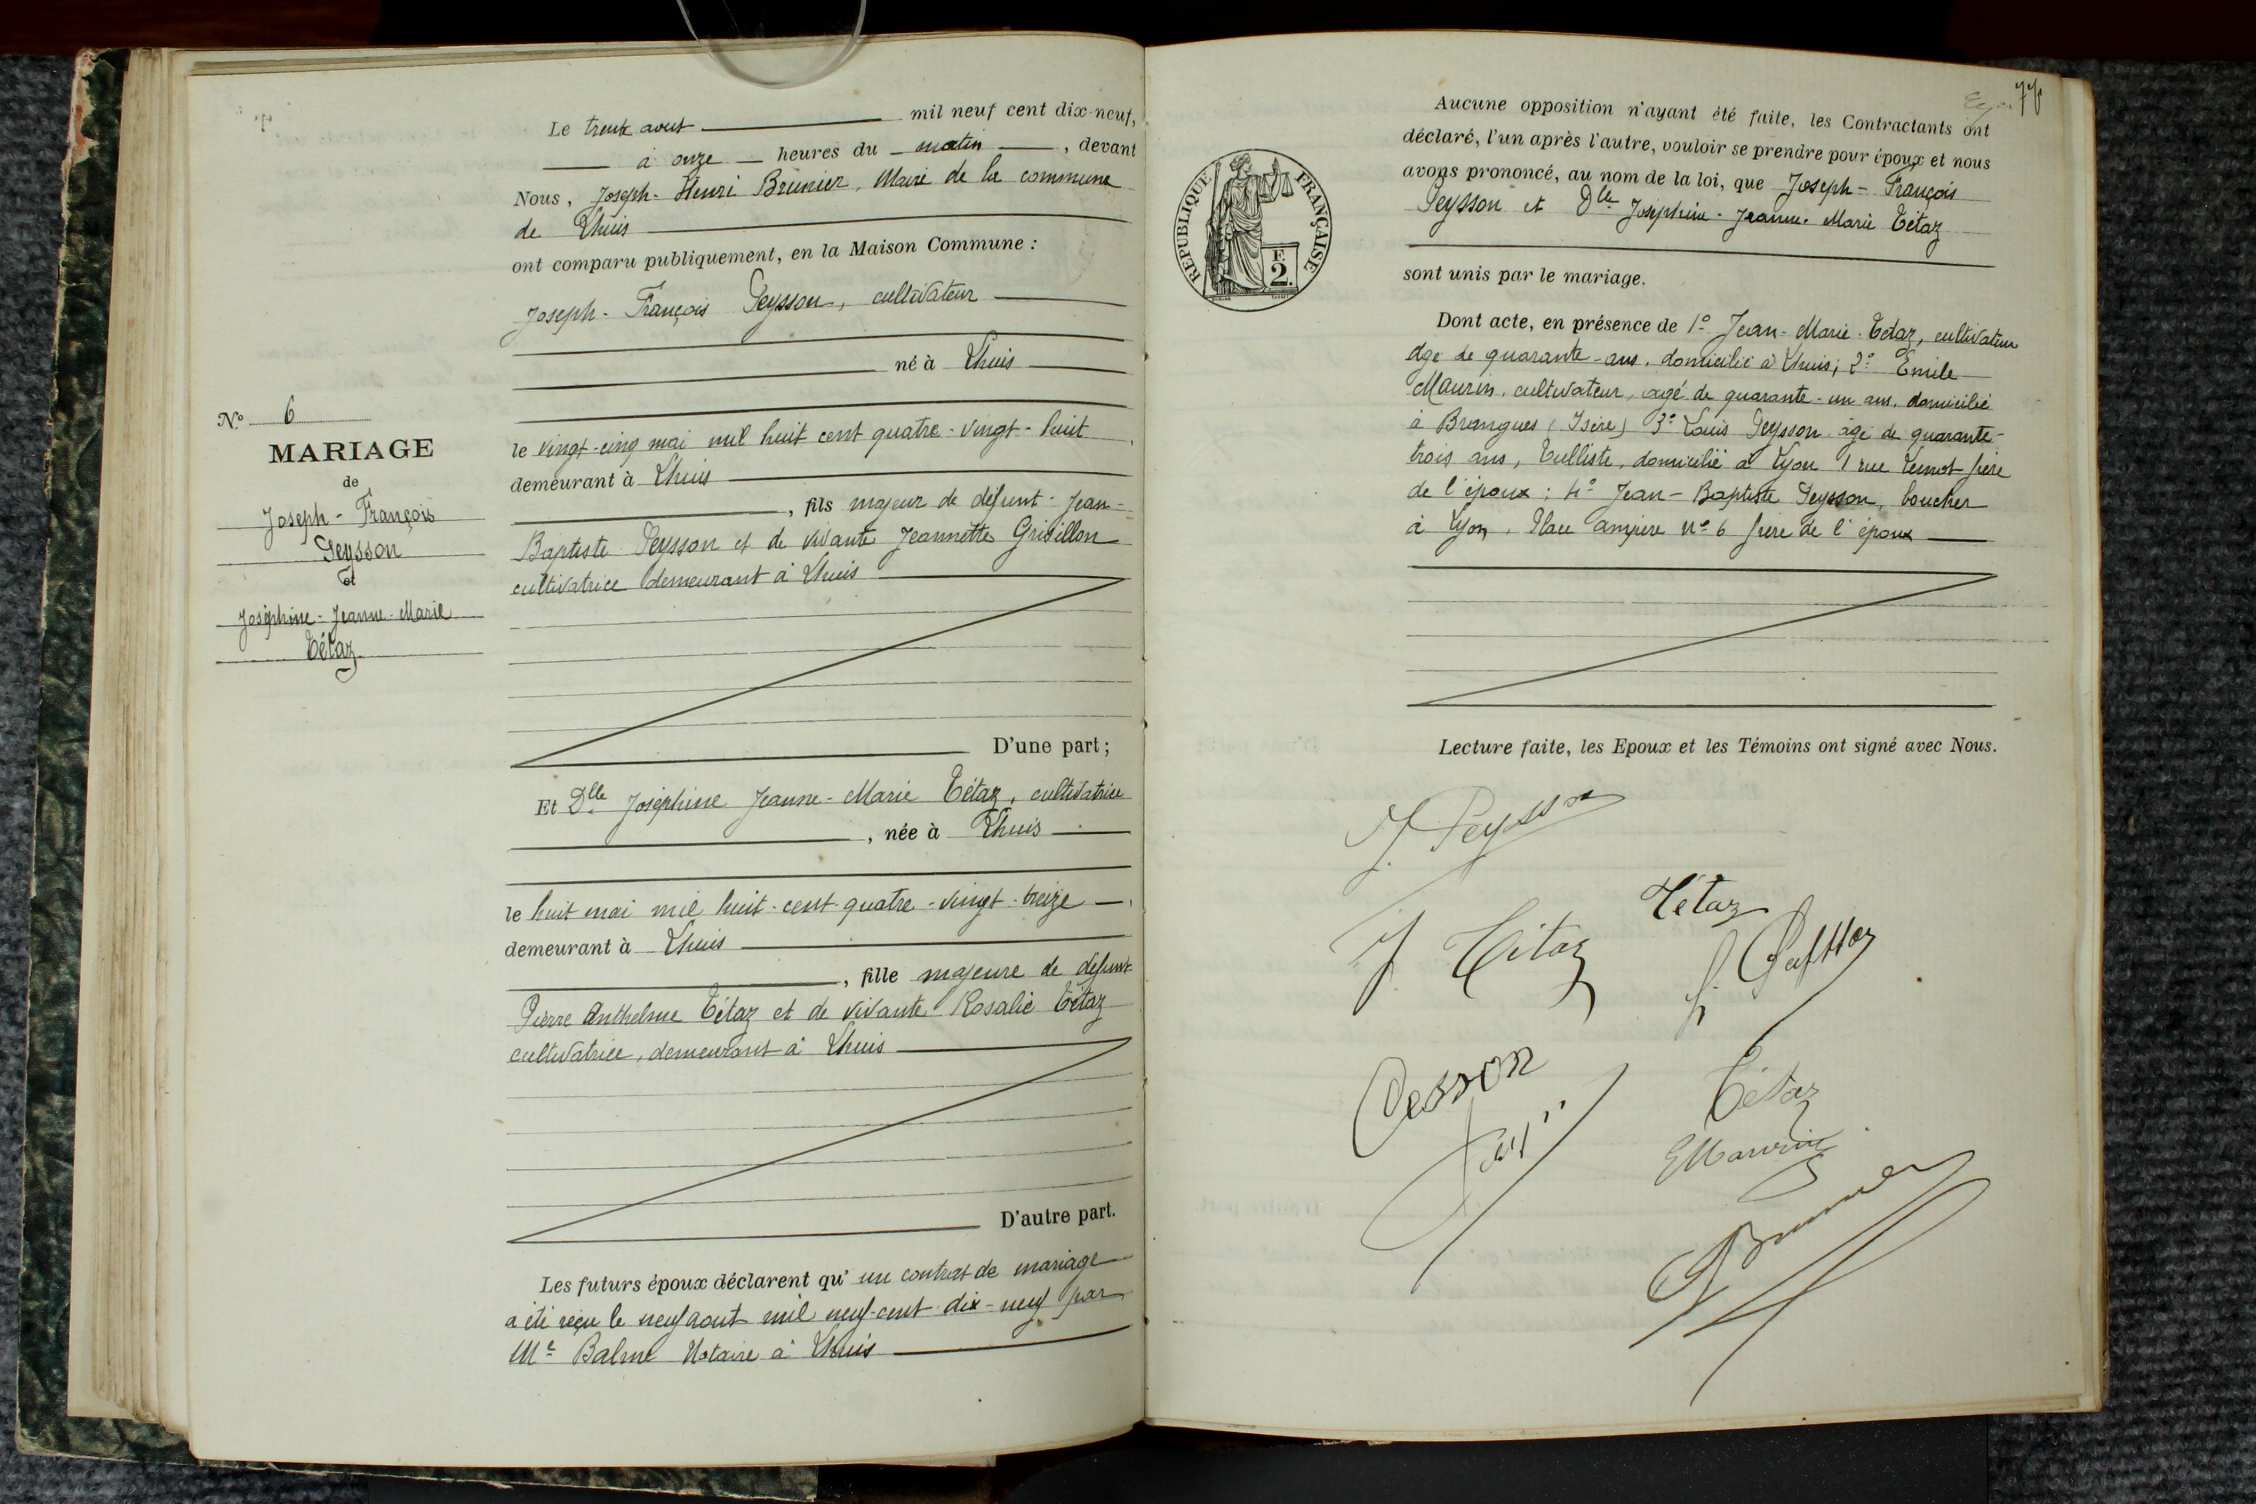 Le trente aout mil neuf cent dix-neuf,
à onze heures du matin, devant
Nous, Joseph-Henri Brunier, Maire de la commune
de Lhuis
ont comparu publiquement, en la Maison Commune :
Joseph-François Peysson, cultivateur
né à Lhuis
le vingt-cinq mai mil huit cent quatre-vingt-huit,
demeurant à Lhuis
, fils majeur de défunt Jean-
Baptiste Peysson et de vivante Jeannette Grisillon
cultivatrice demeurant à Lhuis
D'une part;
Et Dlle Joséphine Jeanne-Marie Tétaz, cultivatrice
, née à Lhuis
le huit mai mil huit-cent-quatre-vingt-treize,
demeurant à Lhuis
, fille majeure de défunt
Pierre Anthelme Tétaz et de vivante Rosalie Tétaz
cultivatrice, demeurant à Lhuis
D'autre part.
Les futurs époux déclarent qu'un contrat de mariage
a été reçu le neuf aout mil neuf-cent-dix-neuf par
Me Balme Notaire à Lhuis
No 6
MARIAGE
de
Joseph-François
Peysson
et
Joséphine-Jeanne-Marie
Tétaz
76
Aucune opposition n'ayant été faite, les Contractants ont
déclaré, l'un après l'autre, vouloir se prendre pour époux et nous
avons prononcé, au nom de la loi, que Joseph-François
Peysson et Dlle Joséphine-Jeanne-Marie Tétaz
sont unis par le mariage.
RÉPUBLIQUE FRANÇAISE
E
2.
Dont acte, en présence de 1º Jean-Marie Tétaz, cultivateur
âgé de quarante-ans, domicilié à Lhuis; 2º Emile
Maurin, cultivateur, âgé de quarante-un ans, domicilié
à Brangues (Isère) 3º Louis Peysson âgé de quarante-
trois ans, Tulliste, domicilié à Lyon 1 rue Lemot frère
de l'époux; 4º Jean-Baptiste Peysson, boucher
à Lyon, Place ampère No 6 frère de l'époux
Lecture faite, les Epoux et les Témoins ont signé avec Nous.
J. Peysson
Tétaz
J Tétaz
Tétaz
EMaurin
Brunier